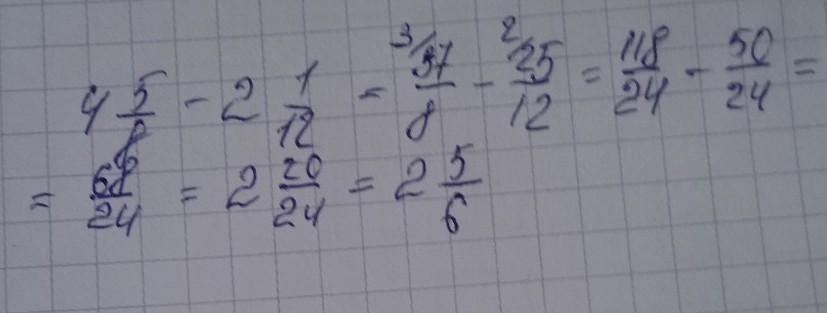 4 5/8 - 2 1/12 = 3/ 37/8 - 2/ 25/12 = 118/24 - 50/24 =
= 68/24 = 2 20/24 = 2 5/6